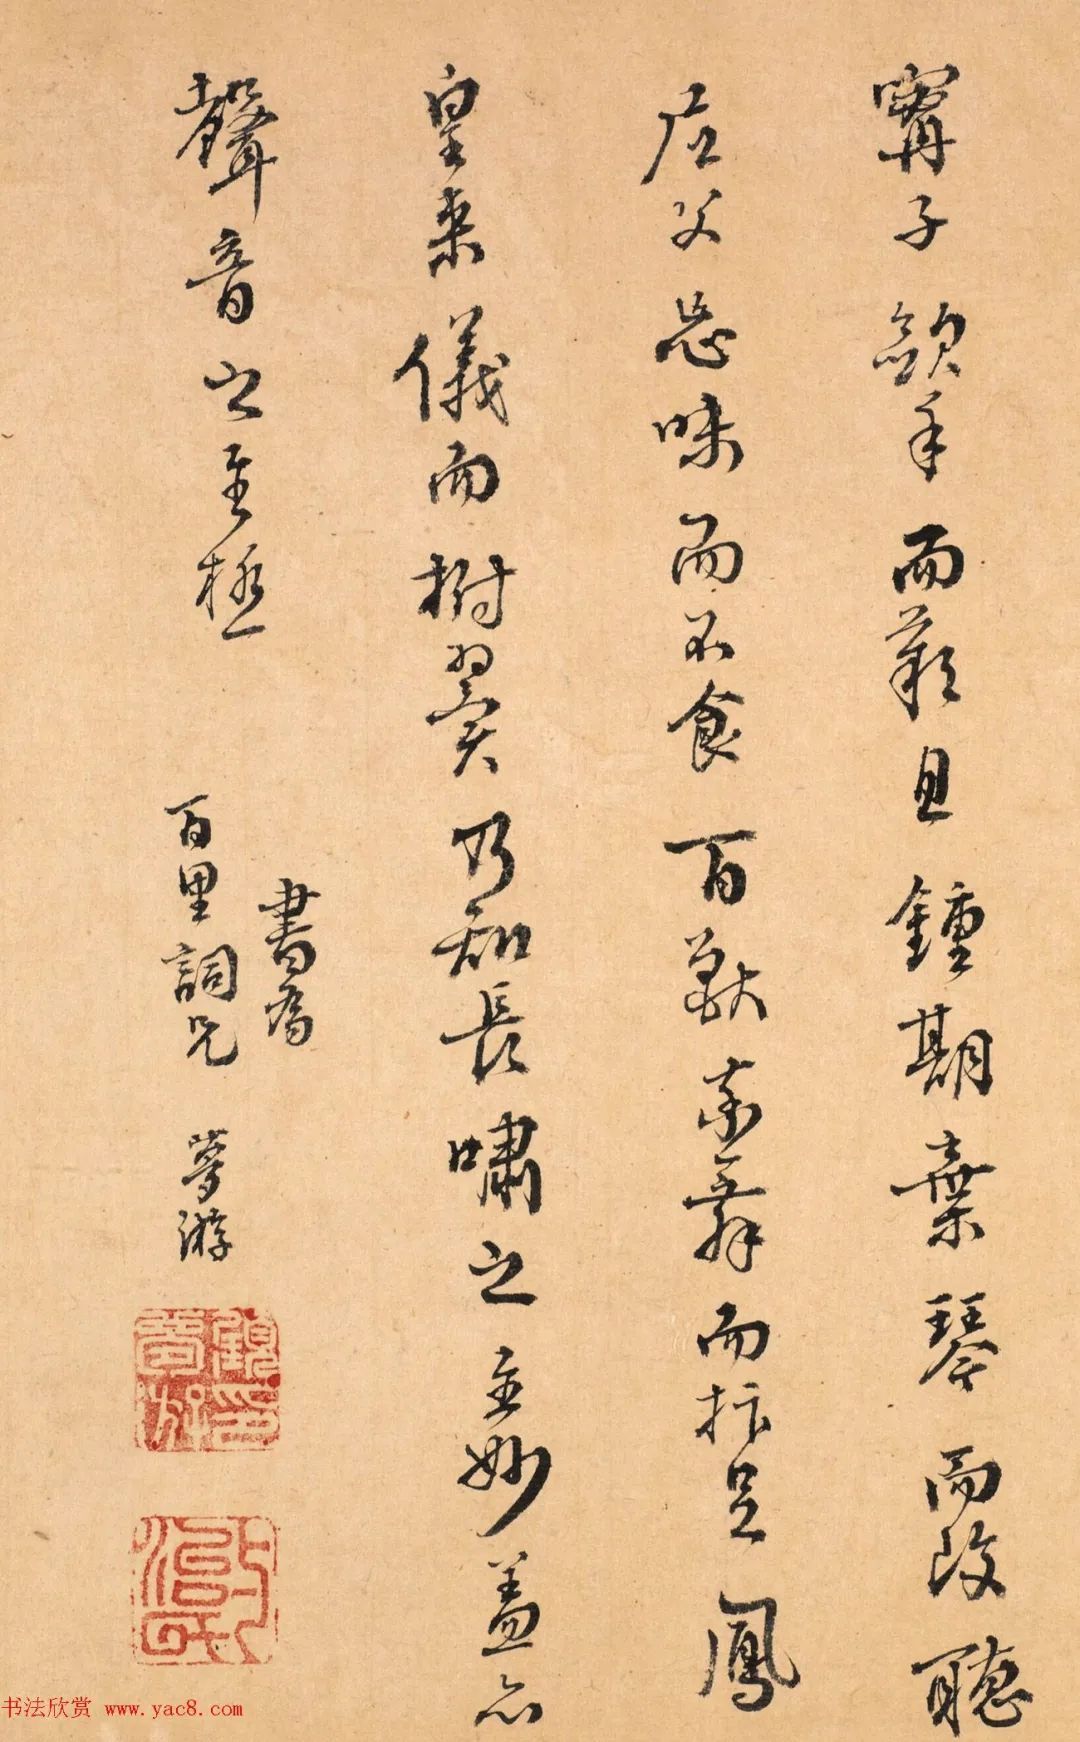 甯子歛手而歎息鍾期棄琴而改聽
尼父忘味而不食百獸率舞而抃足鳳
皇来儀而拊翼乃知長嘯之至妙蓋亦
聲音之至極
書為
百里詞兄 夢游
顧夢游印
书法欣赏 www.yac8.com